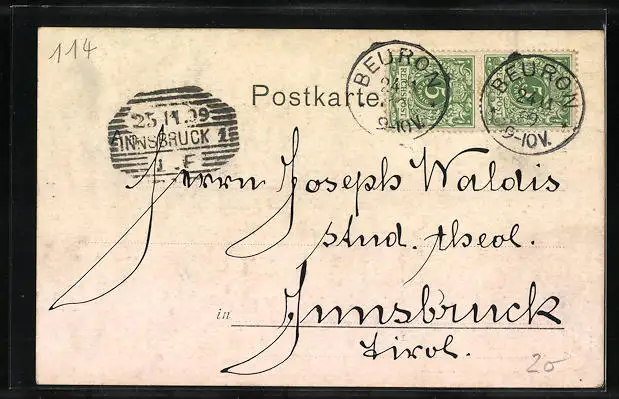 114
BEURON
24 11
9-10V.
BEURON
24 11
9-10V.
5
Postkarte.
25.11.99
INNSBRUCK 1
1 F
Herrn Joseph Waldis
stud. theol.
in Innsbruck
Tirol.
20